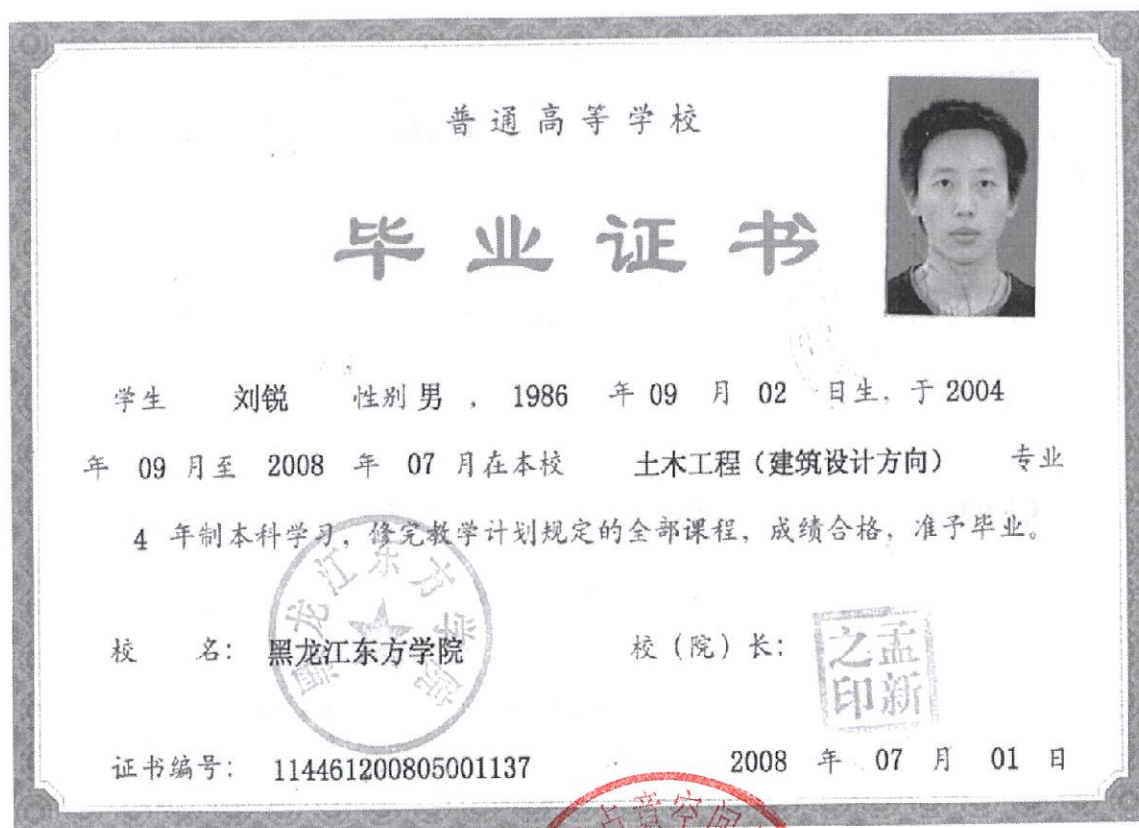 普通高等学校
毕业证书
学生 刘锐 性别 男 , 1986 年 09 月 02 日生, 于 2004
年 09 月至 2008 年 07 月在本校 土木工程（建筑设计方向） 专业
4 年制本科学习, 修完教学计划规定的全部课程, 成绩合格, 准予毕业。
黑龙江东方学院
校 名: 黑龙江东方学院 校（院）长:
孟新之印
证书编号: 114461200805001137 2008 年 07 月 01 日
意空间